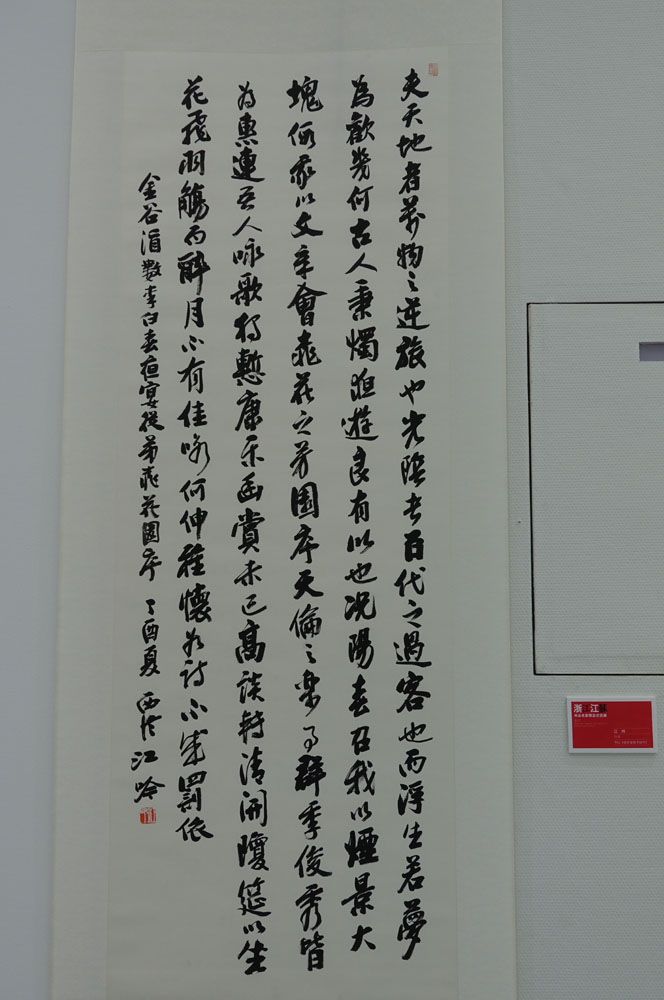 夫天地者萬物之逆旅也光陰者百代之過客也而浮生若夢
為歡幾何古人秉燭夜遊良有以也況陽春召我以煙景大
塊假我以文章會桃花之芳園序天倫之樂事群季俊秀皆
為惠連吾人咏歌獨慙康樂幽賞未已高談轉清開瓊筵以坐
花飛羽觴而醉月不有佳咏何伸雅懷如詩不成罰依
金谷酒數李白春夜宴從弟桃花園序 丁酉夏 西泠江吟
浙江